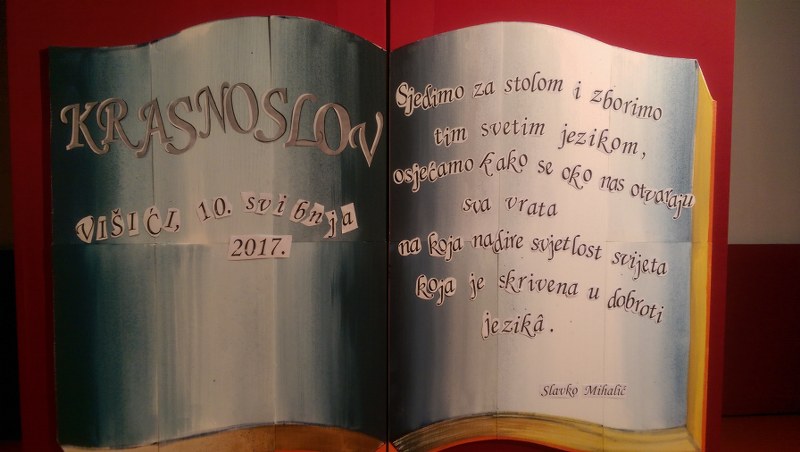 KRASNOSLOV
VIŠIĆI, 10. svibnja
2017.
Sjedimo za stolom i zborimo
tim svetim jezikom,
osjećamo kako se oko nas otvaraju
sva vrata
na koja nadire svjetlost svijeta
koja je skrivena u dobroti
jezikâ.
Slavko Mihalić